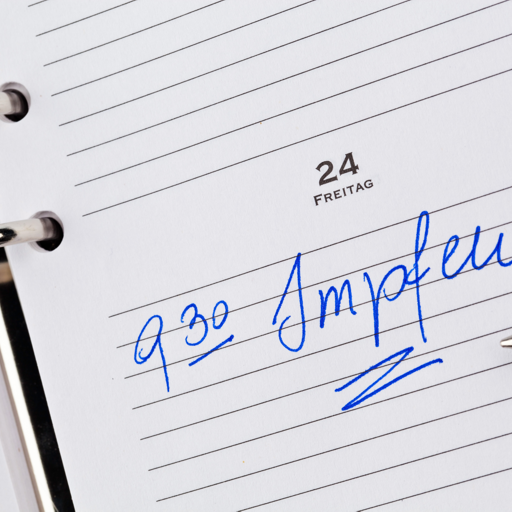 24
FREITAG
9 30 Impfen